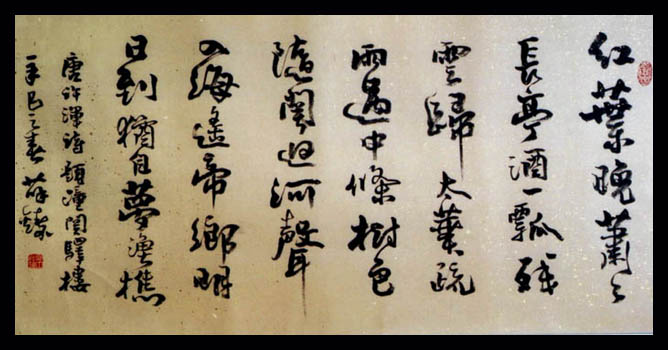 红葉晚蕭々
長亭酒一瓢残
雲歸太華疏
雨過中條樹色
隨關迥河聲
入海遙帝鄉明
日到猶自夢漁樵
唐许渾诗題潼関驛樓
辛巳之春